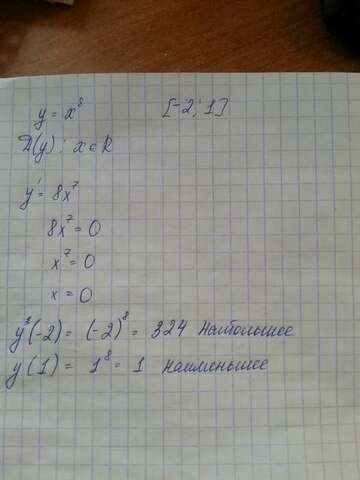 y = x⁸ [-2; 1]
D(y): x∈R
y' = 8x⁷
8x⁷ = 0
x⁷ = 0
x = 0
y(-2) = (-2)⁸ = 324 наибольшее
y(1) = 1⁸ = 1 наименьшее